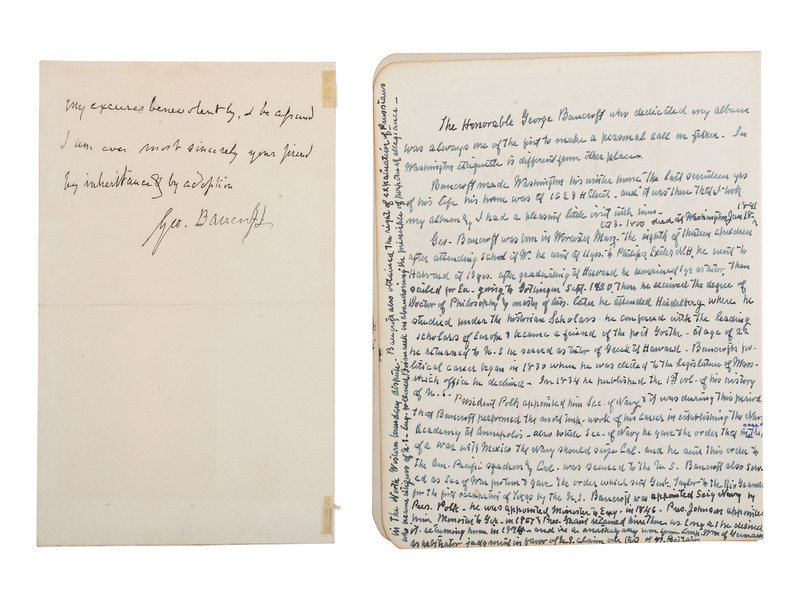 my excuses benevolently, & be a friend
I am ever most sincerely your friend
by inheritance & by adoption
Geo. Bancroft
The Honorable George Bancroft who dedicated my album
was always one of the first to make a personal call on father. In
Washington etiquette is different from other places.
Bancroft made Washington his winter home the last seventeen yrs
of his life his home was at 1623 H Street - and it was there that I took
my album & I had a pleasant little visit with him -
Oct 3 - 1800 died at Washington Jan 17 - 1891
Geo. Bancroft was born in Worcester Mass. - the eighth of thirteen children
after attending school at W. he went at 11 yrs. to Philips Exeter N.H. he went to
Harvard at 13 yrs. after graduating at Harvard he remained 1 yr as tutor, then
sailed for Eu - going to Gottingen Sept. 1820, then he received the degree of
Doctor of Philosophy & master of Arts. Later he attended Heidelberg where he
studied under the historian Scholars. he conferred with the leading
scholars of Europe & became a friend of the poet Goethe - at age of 22
he returned to U.S. he served as tutor of Greek at Harvard. Bancroft's po-
litical career began in 1830 when he was elected to the legislature of Mass.
which office he declined - In 1834 he published the 1st vol. of his history
of U.S. - President Polk appointed him Sec. of Navy & it was during this period
that Bancroft performed the most imp. work of his career in establishing the Naval
Academy at Annapolis - also while Sec. of Navy he gave the order that in the
of a war with Mexico the Navy should seize Cal. and he sent this order to
the Am. Pacific squadron & Cal. was secured to the U.S. Bancroft also serv-
ed as Sec of War pro tem & gave the order which sent Genl. Taylor to the Rio Grande
for the first occupation of Texas by the U.S. Bancroft was appointed Sec'y Navy by
Pres. Polk - he was appointed minister to Eng - in 1846 - Pres. Johnson appointed
him Minister to Ger. - in 1867 & Pres. Grant retained him there as long as he desired
it. returning home in 1874 -
as arbitrator judgment in favor of U.S. claim
in the North Western boundary dispute - Bancroft also obtained the right of expatriation of Prussians
who became citizens of U.S. - Eng - followed Bismarck in abandoning the principle of perpetual allegiance -